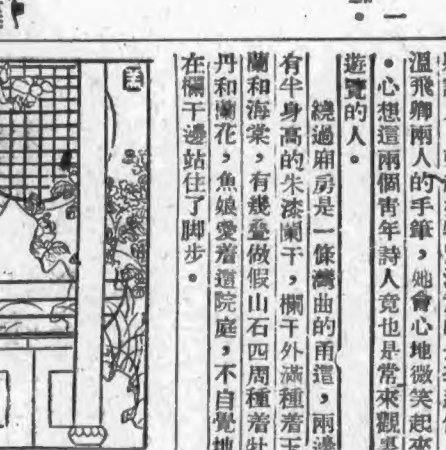 溫飛卿兩人的手筆，她會心地微笑起來
。心想這兩個靑年詩人竟也是常來觀
遊覽的人。
繞過廂房是一條灣曲的甬道，兩邊
有半身高的朱漆闌干，欄干外滿種着玉
蘭和海棠，有幾疊做假山石四周種着牡
丹和蘭花，魚娘愛着這院庭，不自覺地
在欄干邊站住了脚步。